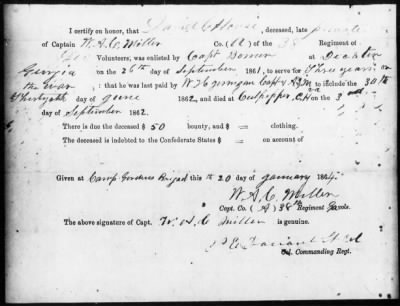 I certify on honor, that Daniel C House, deceased, late private
of Captain W. A. C. Miller Co. (A) of the 38 Regiment of
Geo Volunteers, was enlisted by Capt Bonner at Decktur
Georgia on the 26th day of September 1861, to serve for Three years or
the war; that he was last paid by W H Jernigan Capt & A.Q.M to include the 30th
Thirtyeth day of June 1862, and died at Culpepper C.H on the 3rd
day of September 1862.
There is due the deceased $ 50 bounty, and $ = clothing.
The deceased is indebted to the Confederate States $ on account of
Given at Camp Gordens Brigad this the 20 day of January 1864.
W. A. C. Miller
Capt. Co. (A) 38th Regiment Ga vols.
The above signature of Capt. W. A. C Miller is genuine.
Lt Col
Col. Commanding Regt.